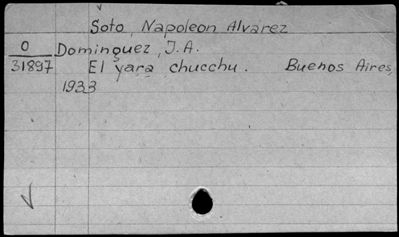 Soto, Napoleon Alvarez
O Dominguez, J.A.
31897 El yara chucchu. Buenos Aires,
1933